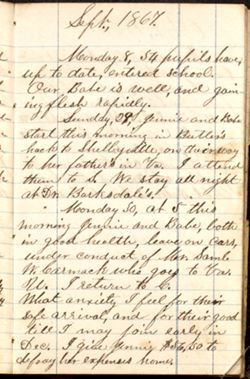 Sept., 1867.
Monday, 8, 54 pupils have,
up to date, entered school.
Our Babe is well, and gain-
ing flesh rapidly.
Sunday, 29, Jinnie and Babe
start this morning in Butler's
hack to Shelbyville, on their way
to her father's in Va. I attend
them to S. We stay all night
at Dr. Barksdale's.
Monday 30, at 5 this
morning Jinnie and Babe, both
in good health, leave on cars,
under conduct of Mr. Saml.
W. Carmack who goes to Va.
I return to C.
What anxiety I feel for their
safe arrival, and for their good
till I may join early in
Dec. I give Jinnie $54,50 to
defray her expenses home.